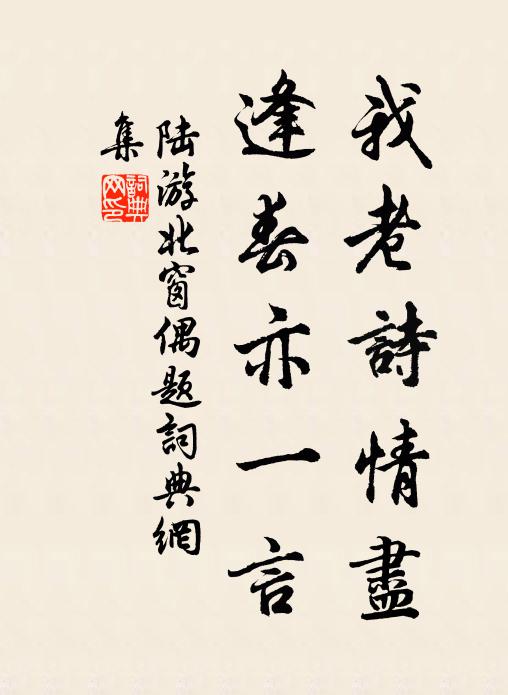 我老詩情盡
逢春亦一言
陸游北窗偶題詞典網
集
詞典
网印